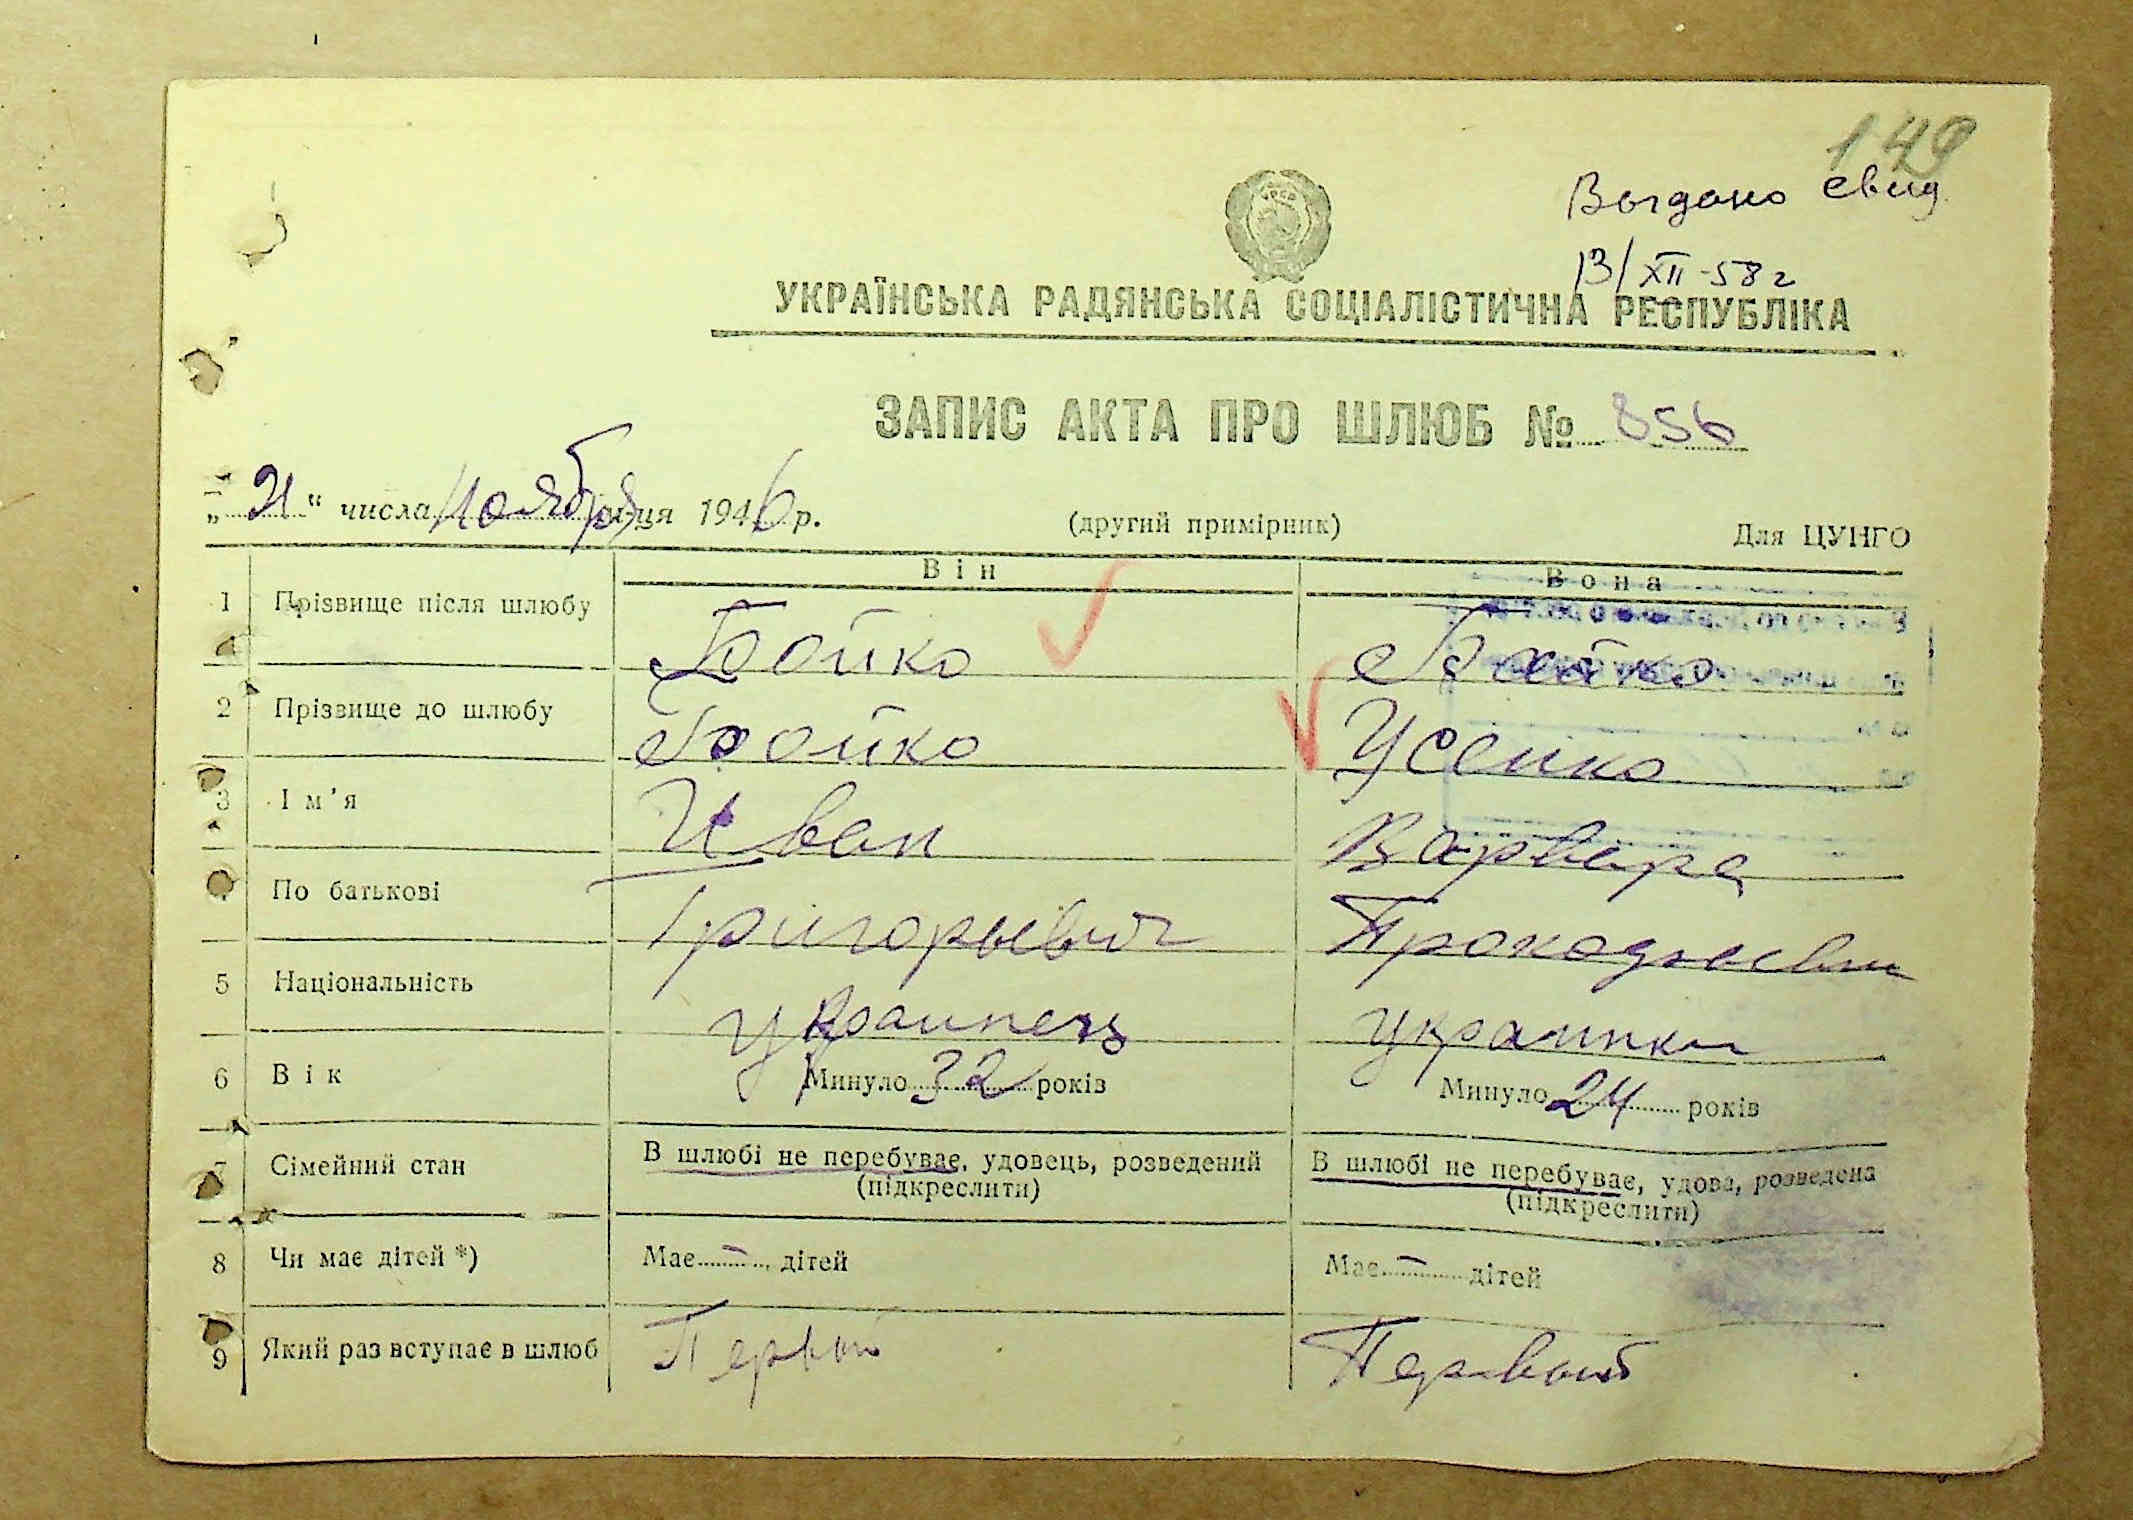 149
Выдано свид.
13/XII-58г
УРСР
УКРАЇНСЬКА РАДЯНСЬКА СОЦІАЛІСТИЧНА РЕСПУБЛІКА
ЗАПИС АКТА ПРО ШЛЮБ № 856
„21“ числа Ноября місяця 1946 р. (другий примірник) Для ЦУНГО
Він Вона
1 Прізвище після шлюбу Бойко Бойко
2 Прізвище до шлюбу Бойко Усенко
3 Ім'я Иван Варвара
4 По батькові Григорьевич
5 Національність Украинец Украинка
6 Вік Минуло 32 років Минуло 24 років
7 Сімейний стан В шлюбі не перебуває, удовець, розведений (підкреслити) В шлюбі не перебуває, удова, розведена (підкреслити)
8 Чи має дітей *) Має – дітей Має – дітей
9 Який раз вступає в шлюб Первый Первый